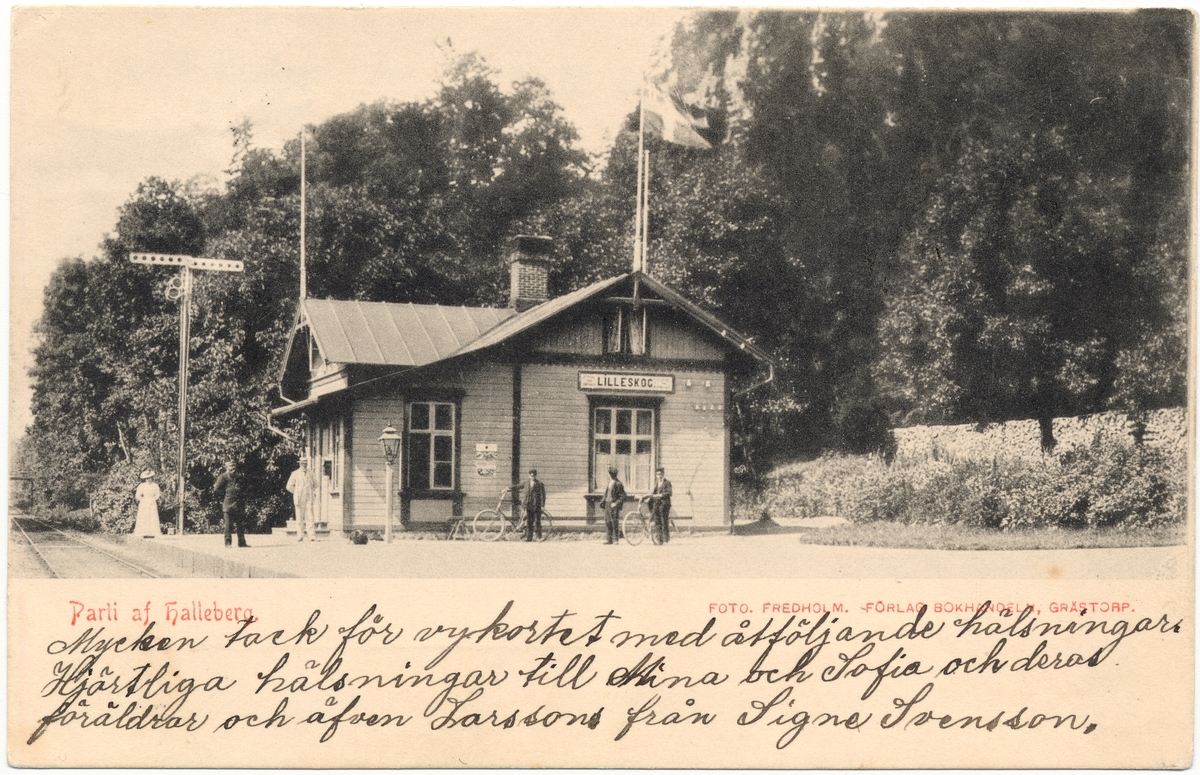 LILLESKOG
Parti af Halleberg.
FOTO. FREDHOLM. FÖRLAG BOKHANDELN, GRÄSTORP.
Mycken tack för vykortet med åtföljande hälsningar.
Hjärtliga hälsningar till Mina och Sofia och deras
föräldrar och äfven Larssons från Signe Svensson.